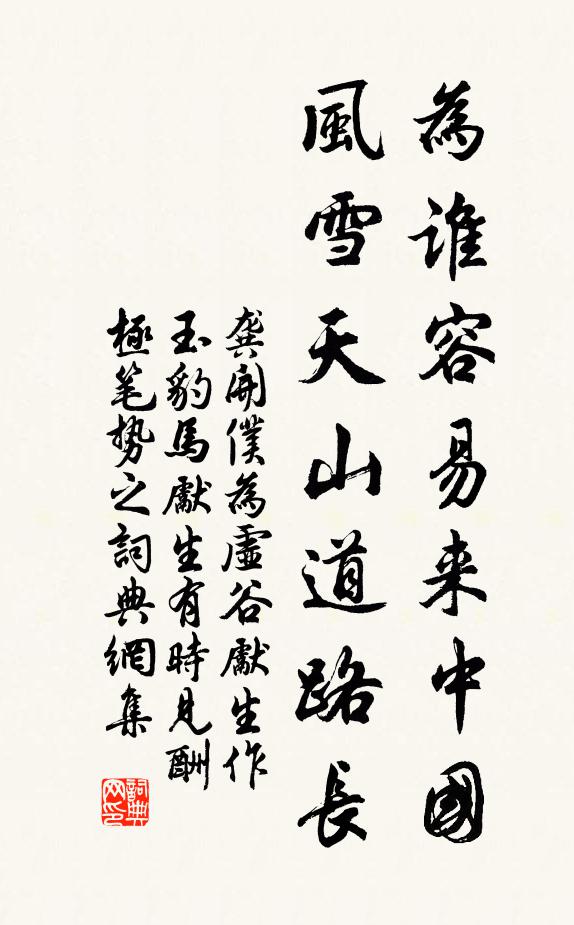 為誰容易来中國
風雪天山道路長
龚開僕為虛谷獻生作
玉豹馬獻生有時見酬
極笔势之詞典網集
詞典网印